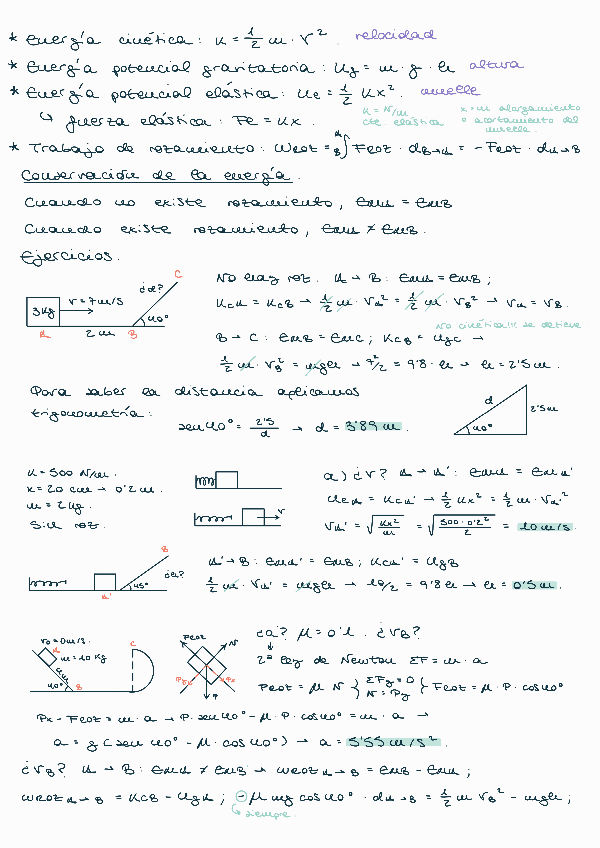 * Energía cinética: K = 1/2 m · v². velocidad
* Energía potencial gravitatoria: Ug = m · g · h altura
* Energía potencial elástica: Ue = 1/2 Kx². muelle
↳ fuerza elástica: Fe = Kx. K = N/m. cte elástica x = m alargamiento o acortamiento del muelle.
* Trabajo de rozamiento: Wroz = ∫ Froz · dA→B = - Froz · dA→B
Conservación de la energía.
Cuando no existe rozamiento, EmA = EmB
Cuando existe rozamiento, EmA ≠ EmB.
Ejercicios.
No hay roz. A → B: EmA = EmB;
3 Kg v = 7 m/s ¿d? C
A 2 m B 40°
KcA = KcB → 1/2 m · VA² = 1/2 m · VB² → VA = VB.
No cinética xq se detiene
B → C: EmB = EmC; KcB = UgC →
1/2 m · VB² = mgh → 7²/2 = 9'8 · h → h = 2'5 m.
Para saber la distancia aplicamos
trigonometría:
sen 40° = 2'5/d → d = 3'89 m.
d 2'5 m 40°
K = 500 N/m.
x = 20 cm → 0'2 m.
m = 2 kg.
Sin roz.
v
a) ¿V? A → A': EmA = EmA'
UeA = KcA' → 1/2 Kx² = 1/2 m · VA'²
VA' = √(Kx²/m) = √(500 · 0'2²/2) = 10 m/s.
B ¿h? 45° A'
A' → B: EmA' = EmB; KcA' = UgB
1/2 m · VA'² = mgh → 10/2 = 9'8 h → h = 0'5 m.
v0 = 0 m/s. A m = 10 Kg C
40° B
Froz N Py Px P
¿a? μ = 0'1. ¿VB?
2ª ley de Newton ΣF = m · a
Froz = μ N { ΣFy = 0 N = Py } Froz = μ · P · cos 40°
Px - Froz = m · a → P · sen 40° - μ · P · cos 40° = m · a →
a = g (sen 40° - μ · cos 40°) → a = 5'55 m/s².
¿VB? A → B: EmA ≠ EmB → Wroz A→B = EmB - EmA;
Wroz A→B = KcB - UgA; - μ mg cos 40° · dA→B = 1/2 m VB² - mgh;
↳ siempre.